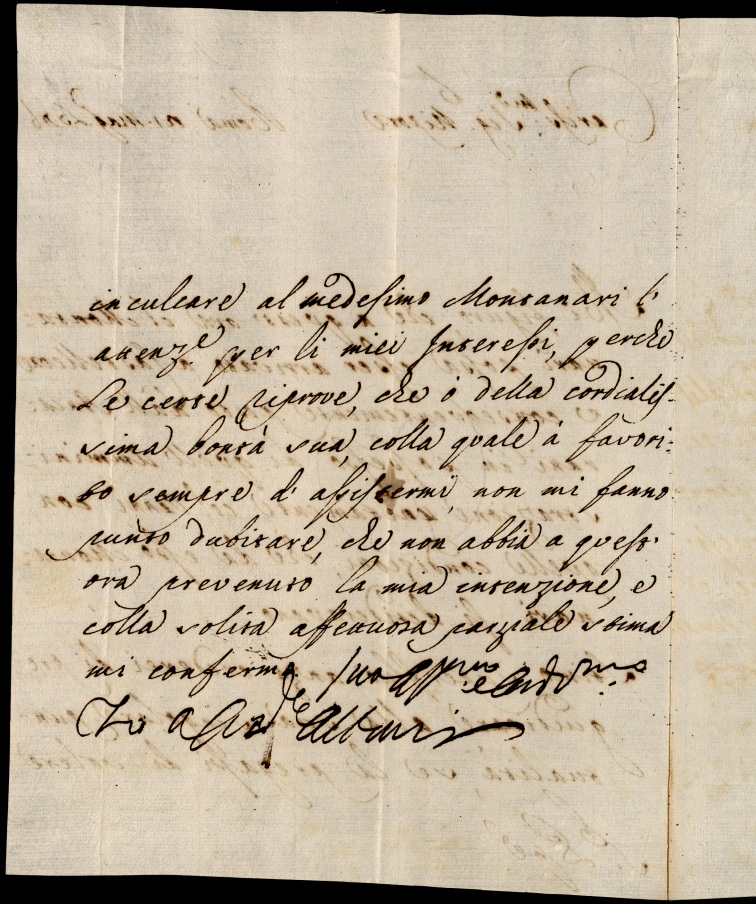 inculcare al medesimo Montanari l'
attenz.e per li miei Interessi, perche
Le certe riprove, che ò della cordialis-
sima bontà sua, colla quale à favori-
to sempre d'assistermi, non mi fanno
punto dubitare, che non abbia a quest'
ora prevenuto la mia intenzione, e
colla solita affettuosa parziale stima
mi confermo Suo aff.mo e
Albani